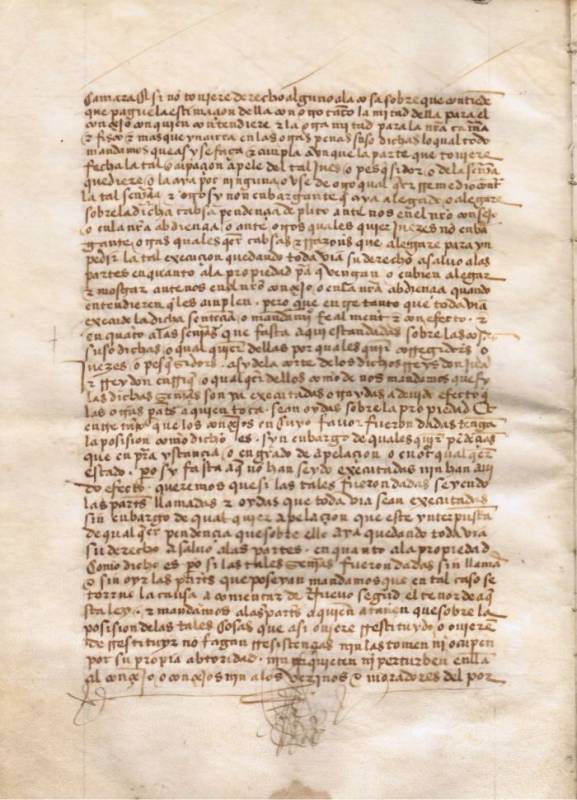 Camara Et si no toviere derecho alguno ala cosa sobre que contiede
que pague la estimaçion della con otro tāto la mitad della para el
conçejo con quien contendiere z la otra mitad para la nrā camā
z fisco z mas que yncurra en las otras penas suso dichas lo qual todo
mandamos que asy se faga z cumpla aun que la parte que toviere
fecha la tal ocupaçion apele del tal Juez o pesquisidor o dela sentēcia
que diere o la aya por ninguna o use de otro qual qer rremedio contra
la tal sentēcia z otrosy non enbargante que aya alegado o alegare
sobre la dicha cabsa pendençia de plito ante nos en el nrō consejo
o en la nrā abdiençia o ante otros quales quier Juezes no enba
gante otras quales qer cabsas z rrazones que alegare para yn
pedir la tal execuçion quedando toda via su derecho a salvo alas
partes en quanto ala propiedad pā que vengan o enbien alegar
z mostrar ante nos en el nrō consejo o en la nrā abdiençia quando
entendieren q les cunple. pero que en tre tanto que toda via
execute la dicha sentençia o mandamiēto rreal mente z con efecto. z
en quāto alas sentēcias que fasta aqui estan dadas sobre las cosas
suso dichas o qual quier dellas por quales quier corregidores o
Juezes o pesqsidores asy dela corte delos dichos rreys don Juā
z rrey don enrriq o qual qer dellos como de nos mandamos que sy
las dichas sentēcias son ya executadas o traydas a devido efecto q
las otras partes a quien toca sean oydas sobre la propiedad Et
en tre tāto que los conçejos en cuyo favor fueron dadas tengā
la posision como dicho es. syn enbargo de quales quier pendēçias
que en prīa ystançia o en grado de apelaçion o en ot qual qer
estado. pō sy fasta aq no han seydo executadas nin han avi
do efecto. queremos que si las tales fueron dadas seyendo
las partes llamadas z oydas que toda via sean executadas
sin enbargo de qual quier apelaçion que este ynterpuesta
de qual qer pendençia que sobre ello aya quedando toda via
su derecho a salvo alas partes. en quanto ala propiedad
Como dicho es pō si las tales sentēcias fueron dadas sin llamar
o sin oyr las partes que poseyan mandamos que en tal caso se
torrne la causa a començar de nuevo segūd el tenor de aq
sta ley. z mandamos alas partes a quien atañen que sobre la
posision de las tales cosas que asi oviere rrestituydo o ovieren
de rrestituyr no fagan rresistençias nin las tomen ni ocupen
por su propia abtoridad. nin ynquieten ni perturben en ella
al conçejo o conçejos nin alos vezinos o moradores del por